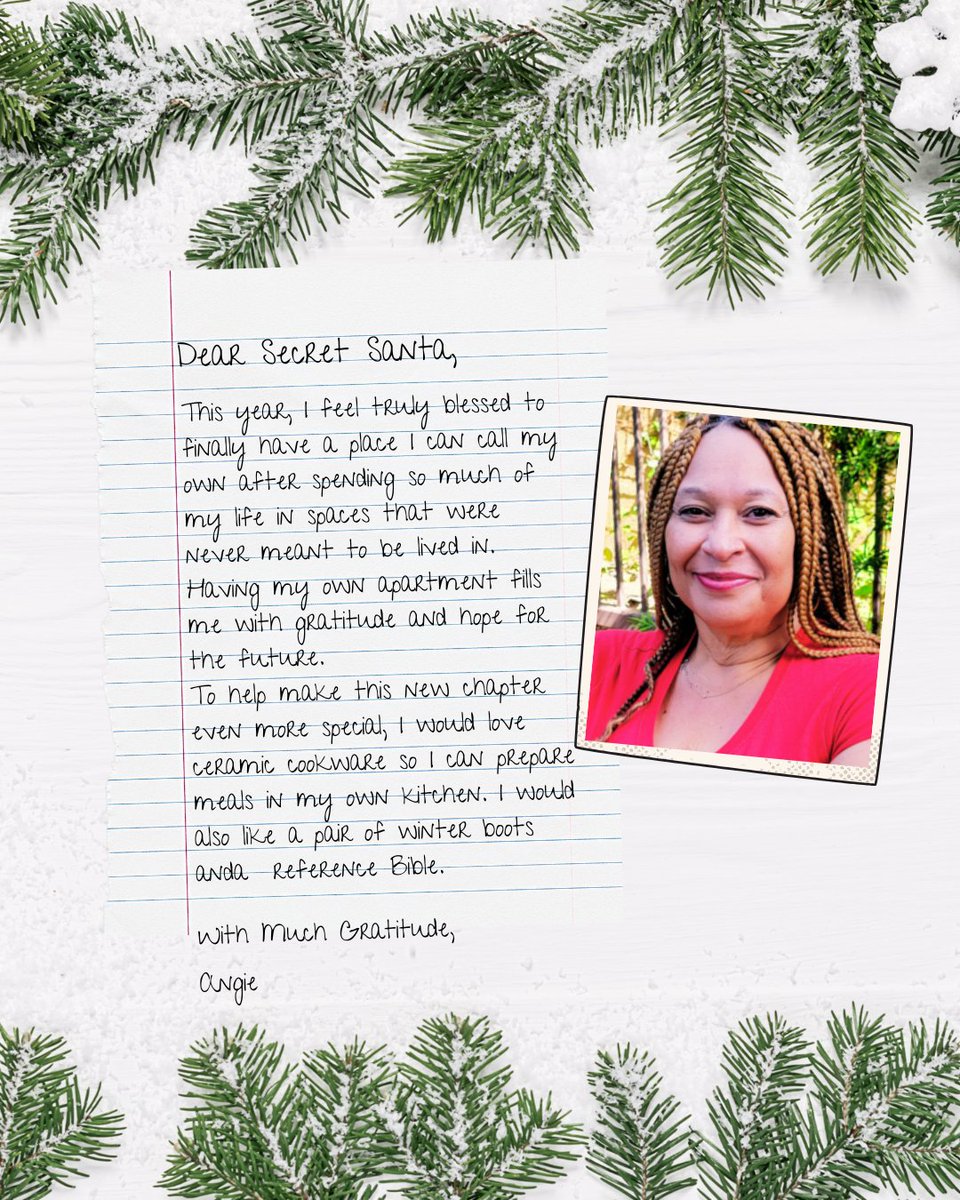 Dear Secret Santa,
This year, I feel truly blessed to
finally have a place I can call my
own after spending so much of
my life in spaces that were
never meant to be lived in.
Having my own apartment fills
me with gratitude and hope for
the future.
To help make this new chapter
even more special, I would love
ceramic cookware so I can prepare
meals in my own kitchen. I would
also like a pair of winter boots
anda reference Bible.
With Much Gratitude,
Angie